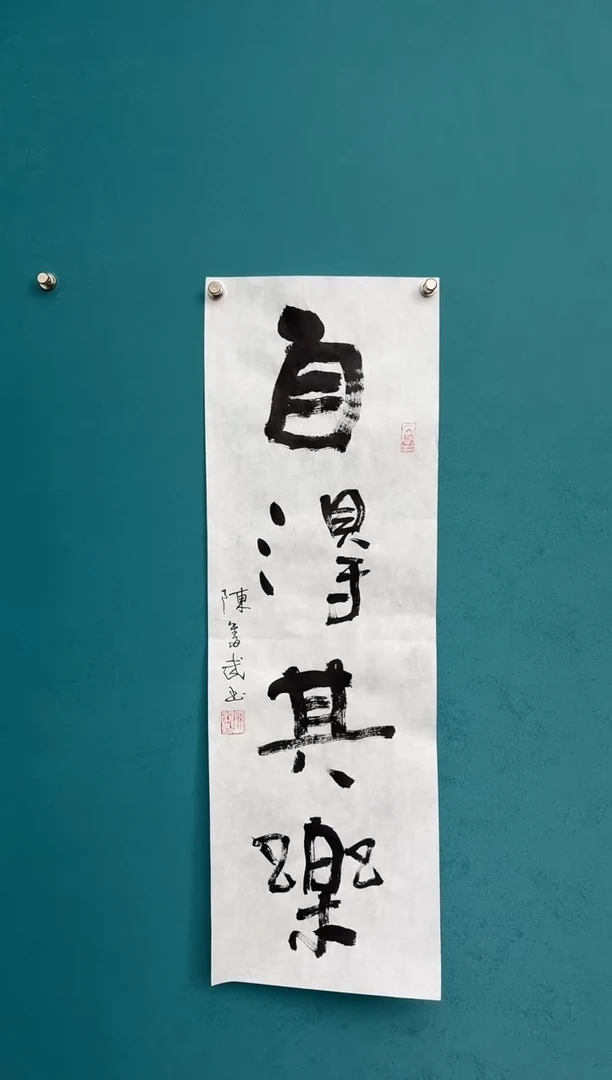 自得其樂
陳書武书